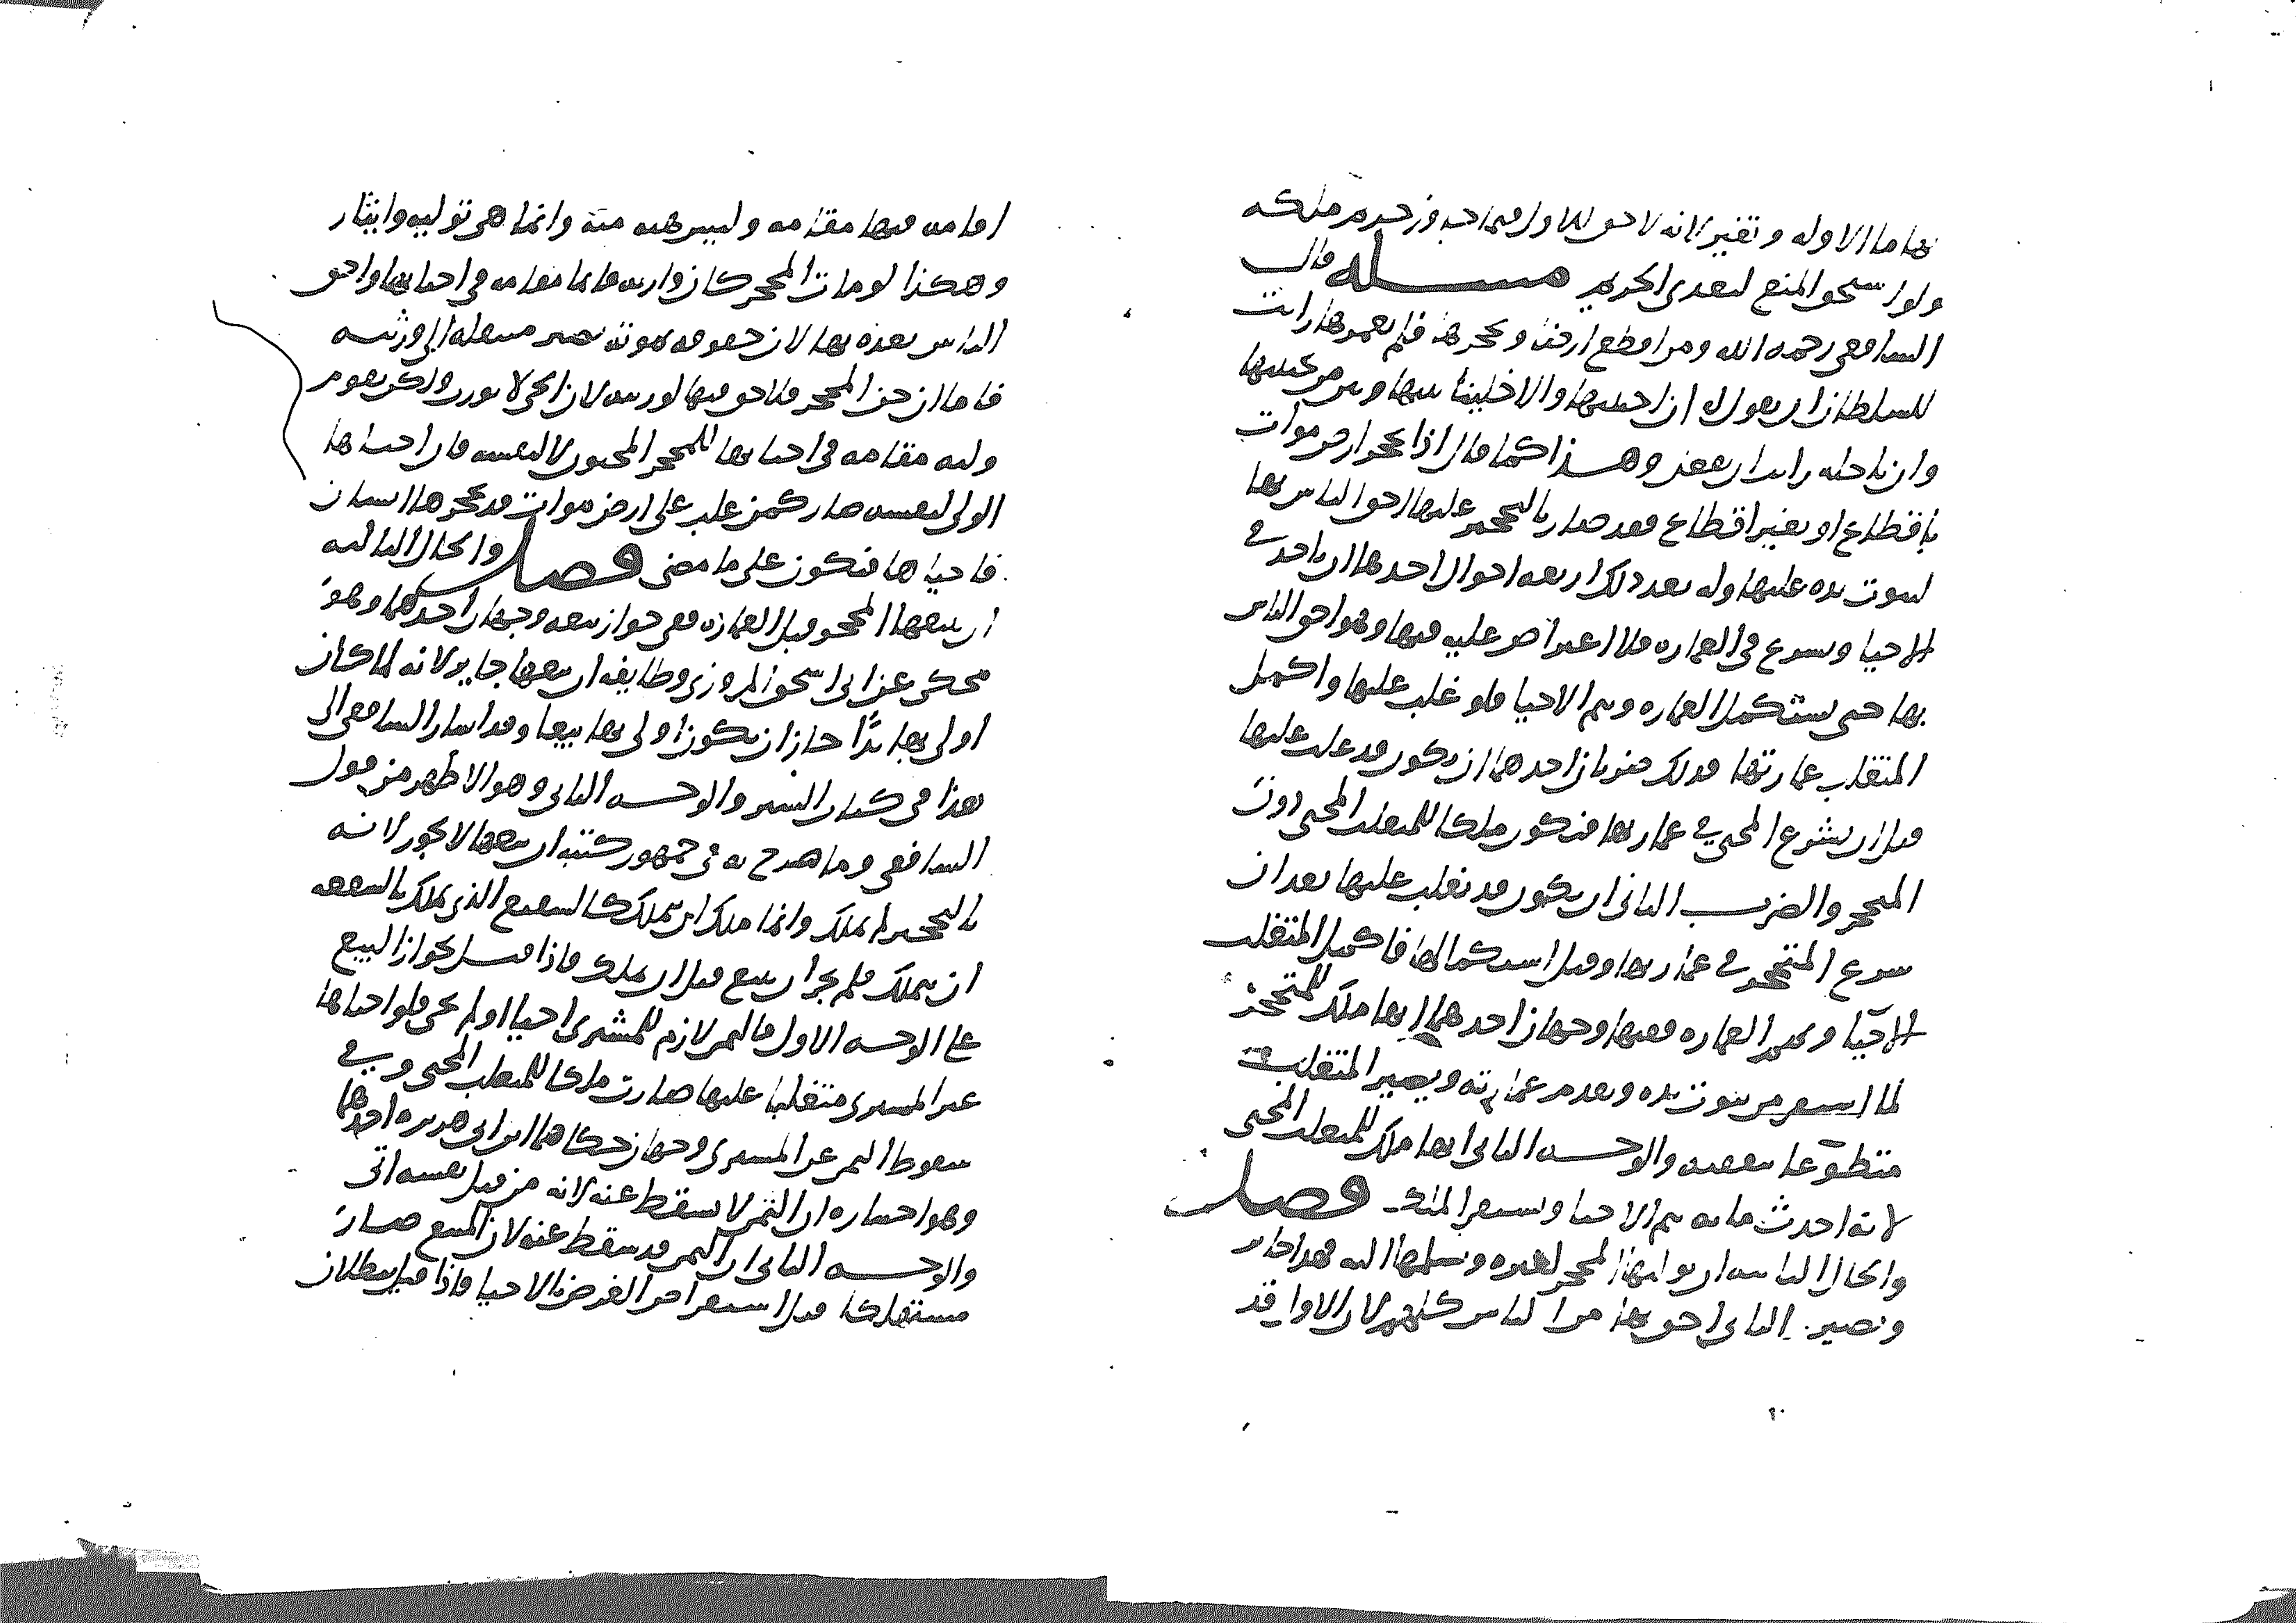 بها ما الاوله وتقير لانه لا حق للاول فيما جاوز حريم ملكه
ولو استحق المنع لتعدى الحريم مسله قال
الشافعي رحمه الله ومن اقطع ارضا وتحجرها فلم يعمرها رايت
للسلطان ان يقول له ان احييتها والا خلينا بينها وبين من يحييها
وان تاجله رايت ان يفعل وهذا كما قال اذا تحجر ارض موات
باقطاع او بغير اقطاع فقد صار بالتحجير عليها احق الناس بها
لثبوت يده عليها وله بعد ذلك اربعة احوال احدها ان ياخذ في
الاحيا ويشرع في العماره فلا اعتراض عليه فيها وهو احق الناس
بها حتى يستكمل العماره ويتم الاحيا فلو غلب عليها واكمل
المتغلب عمارتها فذلك ضربان احدهما ان يكون قد غلب عليها
قبل ان يشرع المحيي في عمارتها فتكون ملكا للمتغلب المحيى دون
المتحجر والضرب الثاني ان يكون قد تغلب عليها بعد ان
شرع المتحجر في عمارتها وقبل استكمالها فاكمل المتغلب
الاحيا وتمم العماره ففيها وجهان احدهما انها ملك للمتحجر
لما استقر من ثبوت يده وتقدم عمارته ويصير المتغلب
متطوعا بنفقته والوجه الثاني انها ملك للمتغلب المحيى
لانه احدث ما به يتم الاحيا ويستقر الملك فصل
والحال الثانيه ان يوليها المتحجر لغيره ويسلمها اليه فهذا جايز
وتصير الثاني احق بها من الناس كلهم لان الاول قد
اقامه فيها مقامه وليس هبه منه وانما هي توليه وايثار
وهكذا لو مات المتحجر كان وارثه قايما مقامه في احيايها واحق
الناس بعده بها لان حقوقه بموته تصير منتقله الى ورثته
فاما ان جن المتحجر فلا حق فيها لورثته لان الحي لا يورث ولكن يقوم
وليه مقامه في احيايها للمتحجر المجنون لا لنفسه فان احياها
الولي لنفسه صار كمن غلب على ارض موات قد تحجرها انسان
فاحياها فتكون على ما مضى فصل والحال الثالثه
ان يبيعها المتحجر قبل العماره ففي جواز بيعه وجهان احدهما وهو
محكي عن ابي اسحق المروزي وطايفه ان بيعها جايز لانه لما كان
اولى بها يدا جاز ان يكون اولى بها بيعا وقد اشار الشافعي الى
هذا في كتاب السير والوجه الثاني وهو الاظهر من قول
الشافعي وما صرح به في جمهور كتبه ان بيعها لا يجوز لانه
بالتحجير لم يملك وانما ملك ان يملك كالشفيع الذي يملك بالشفعه
ان يتملك فلم يجز ان يبيع قبل ان يملك فاذا قيل بجواز البيع
على الوجه الاول فالثمن لازم للمشتري احيا او لم يحي فلو احياها
غير المشتري متغلبا عليها صارت ملكا للمتغلب المحيى وفي
سقوط الثمن عن المشتري وجهان حكاهما ابن ابي هريره احدهما
وهو اختياره ان الثمن لا يسقط عنه لانه من قبل نفسه اتى
والوجه الثاني ان الثمن قد سقط عنه لان المبيع صار
مستهلكا قبل استقرار الغرض بالاحيا فاذا قيل ببطلان
٩٠